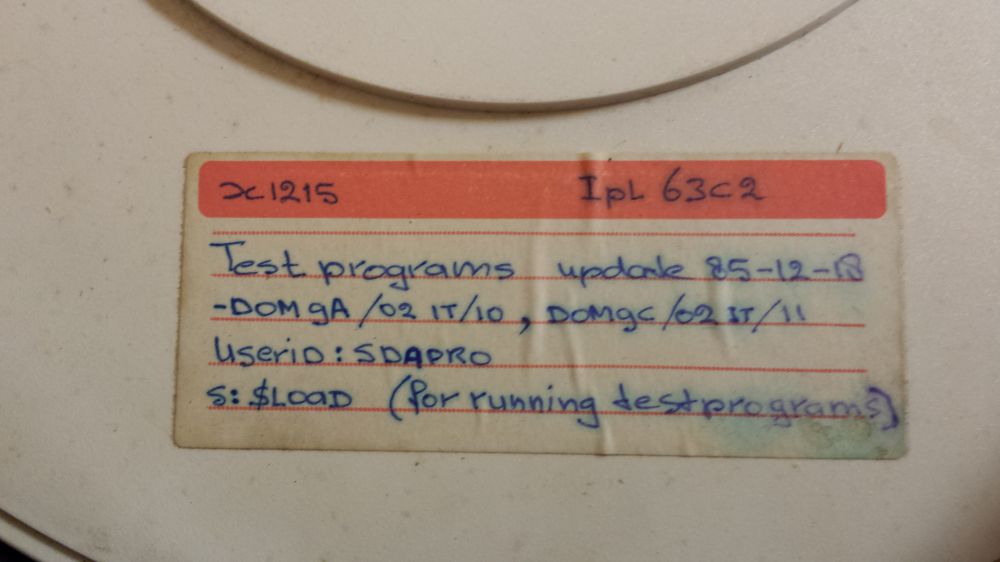 x1215 IpL 63C2
Test programs update 85-12-18
-DOM9A/02 1T/10, DOM9C/02 1T/11
UseriD: SDAPRO
S: $LOAD (for running testprograms)